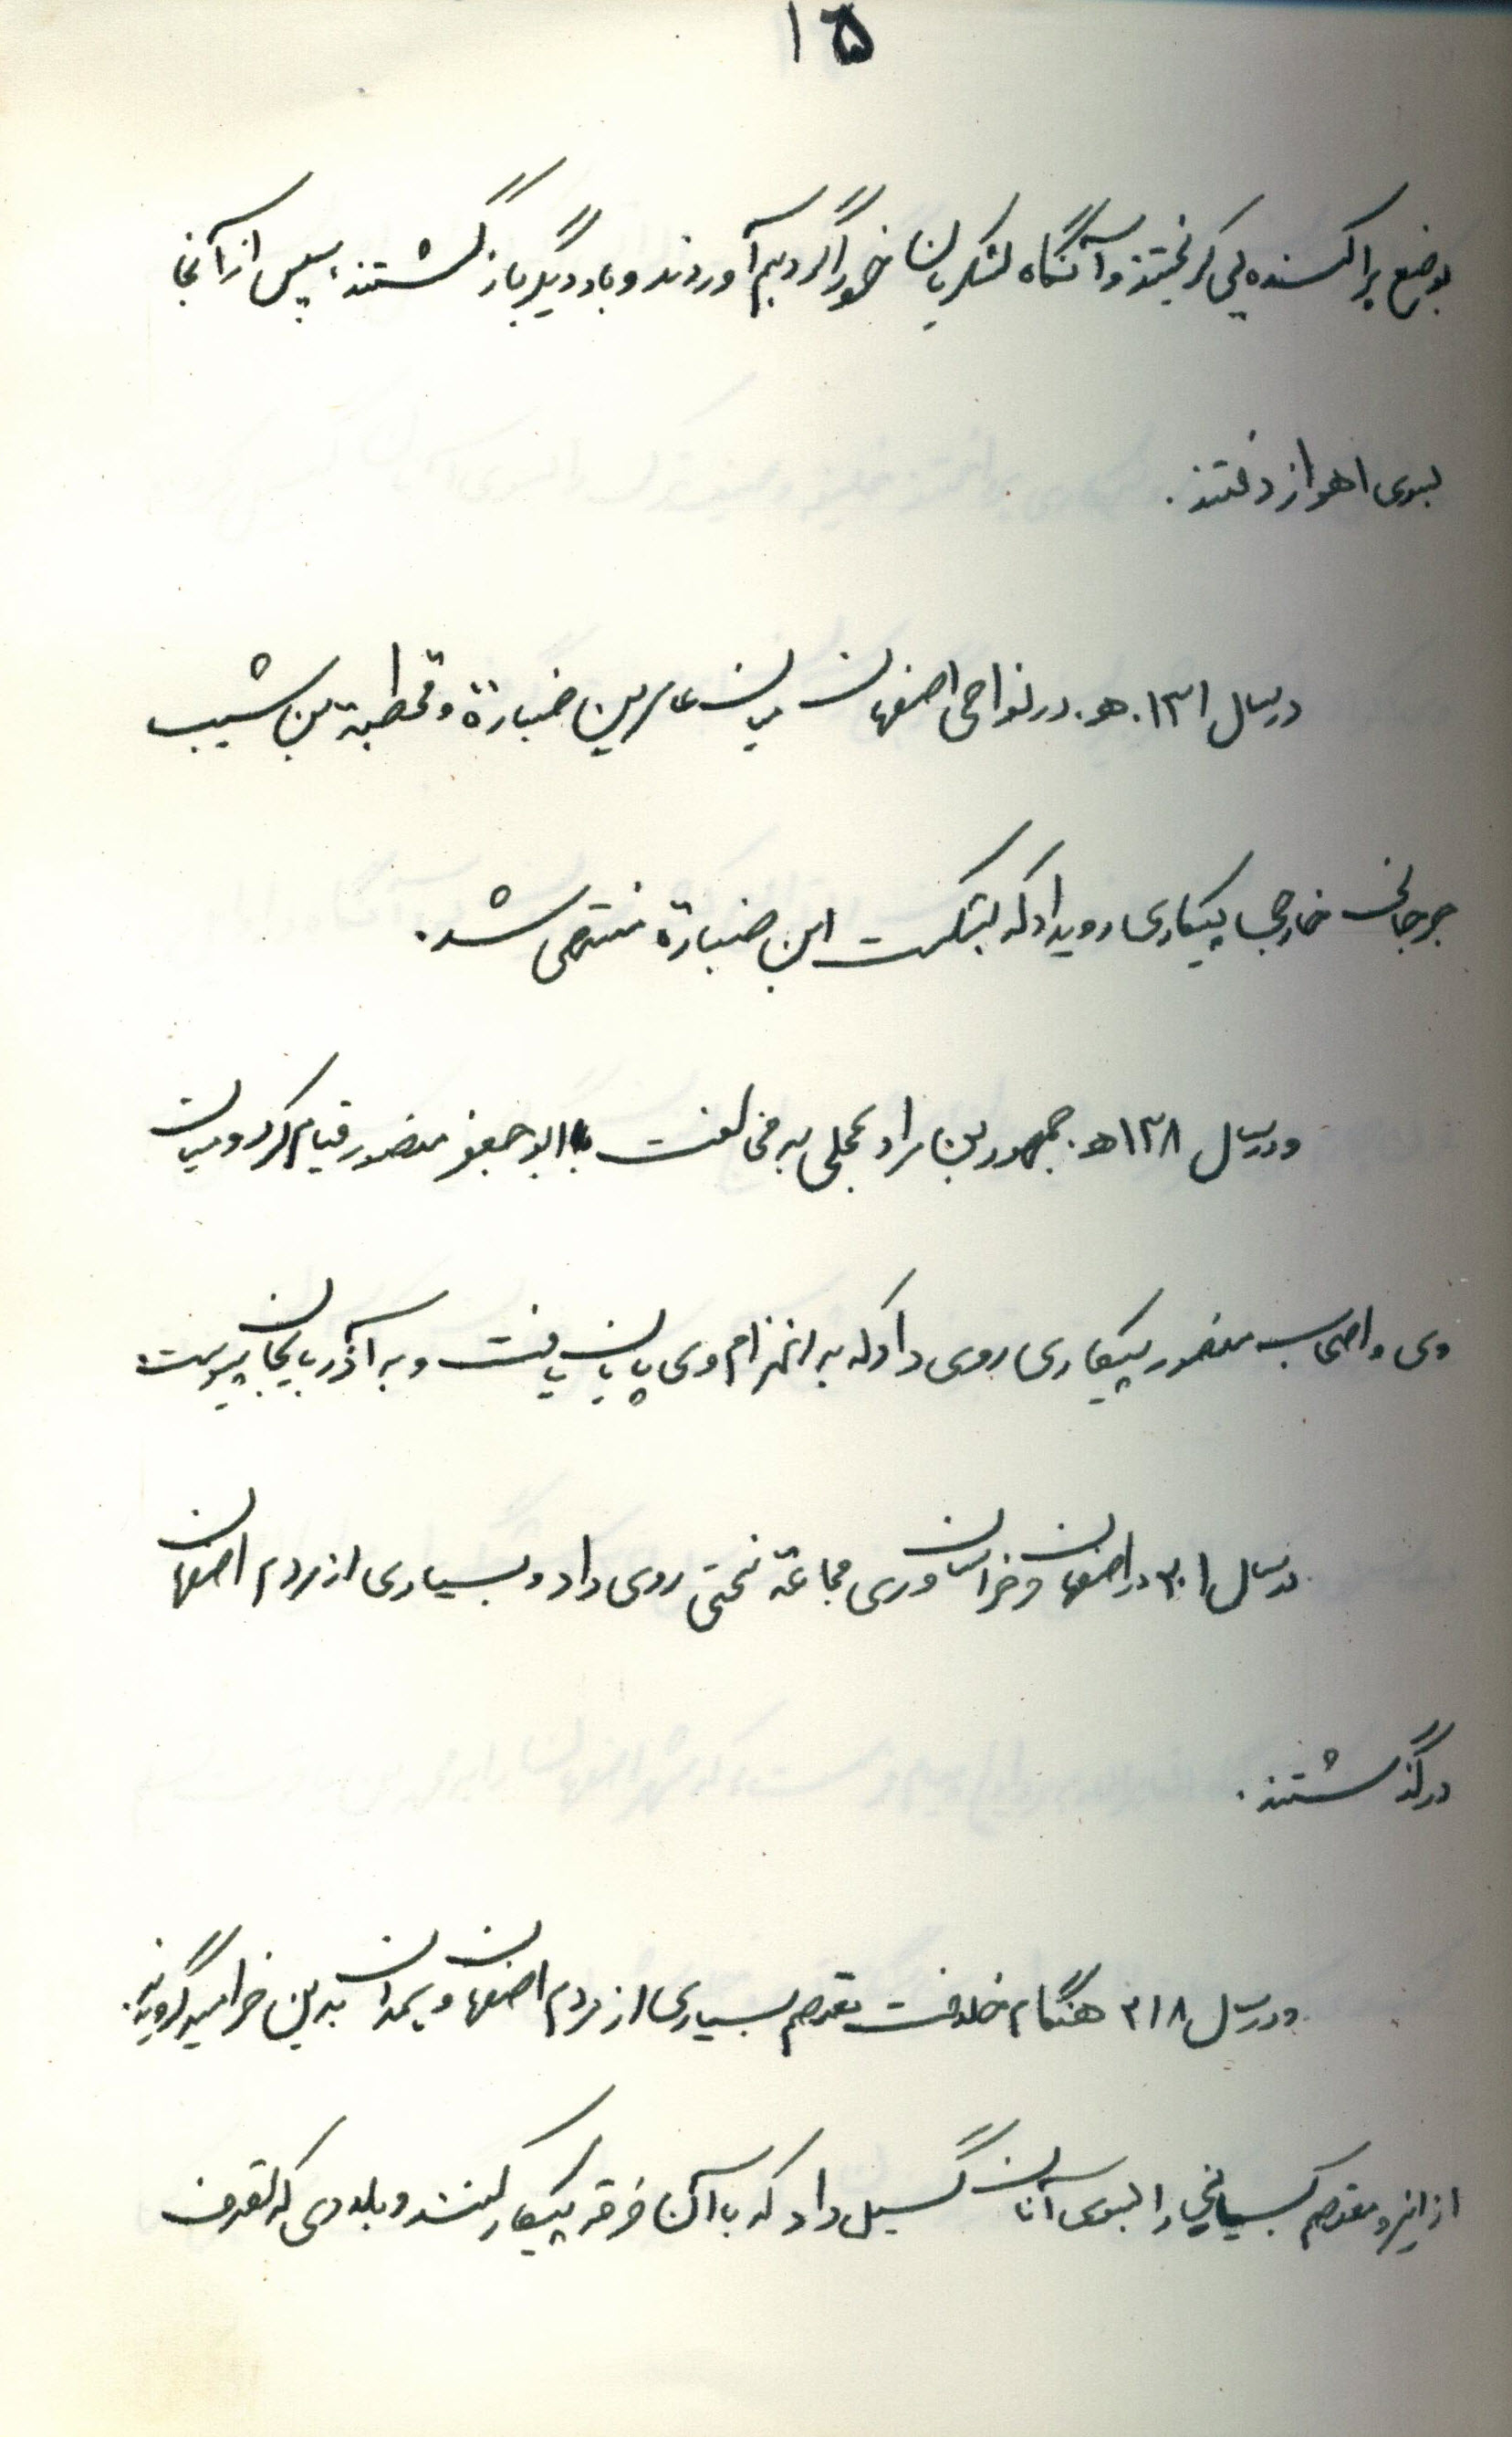 ۱۵
بوضع پراکنده یی گریختند و آنگاه لشکریان خود را گرد هم آوردند و بار دیگر بازگشتند، سپس از آنجا
بسوی اهواز رفتند.
در سال ۱۳۱.هـ. در نواحی اصفهان میان عامر بن ضبارة و قحطبة بن شبیب
جرجانی خارجی پیکاری رویداد که بشکست ابن ضبارة منتهی شد.
و در سال ۱۳۸هـ. جمهور بن مراد عجلی به مخالفت با ابو جعفر منصور قیام کرد و میان
وی و اصحاب منصور پیکاری روی داد که به انهزام وی پایان یافت و به آذربایجان پیوست.
در سال ۲۰۱ در اصفهان و خراسان و ری مجاعة سختی روی داد و بسیاری از مردم اصفهان
درگذشتند.
و در سال ۲۱۸ هنگام خلافت معتصم بسیاری از مردم اصفهان و همدان بدین خرامیه گرویدند.
از اینرو معتصم کسانی را بسوی آنان گسیل داد که با آن فرقه پیکار کنند و بلادی که تصرف